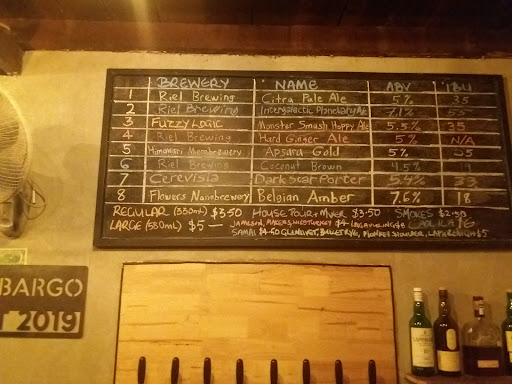 BREWERY NAME ABV IBU
1 Riel Brewing Citra Pale Ale 5% 35
2 Riel Brewing Intergalactic Planetary Ale 7.1% 55
3 FUZZYLOGIC Monster Smash Hoppy Ale 5.5% 35
4 Riel Brewing Hard Ginger Ale 5% N/A
5 Himawari Microbrewery Apsara Gold 5% 25
6 Riel Brewing Coconut Brown 4.5% 19
7 Cerevisia Dark Star Porter
8 Flowers Nanobrewery Belgian Amber 7.6% 18
REGULAR (330mL) $3.50 HOUSE POUR + MIXER $3.50 SMOKES $2.50
LARGE (580mL) $5 — JAMESON, MAKERS, WILD TURKEY $4 LAGAVULIN $8 CAOL ILA $6
SAMAI $4.50 GLENLIVET, BULLEIT RYE, MONKEY SHOULDER, LAPHROAIG $5
BARGO
T 2019